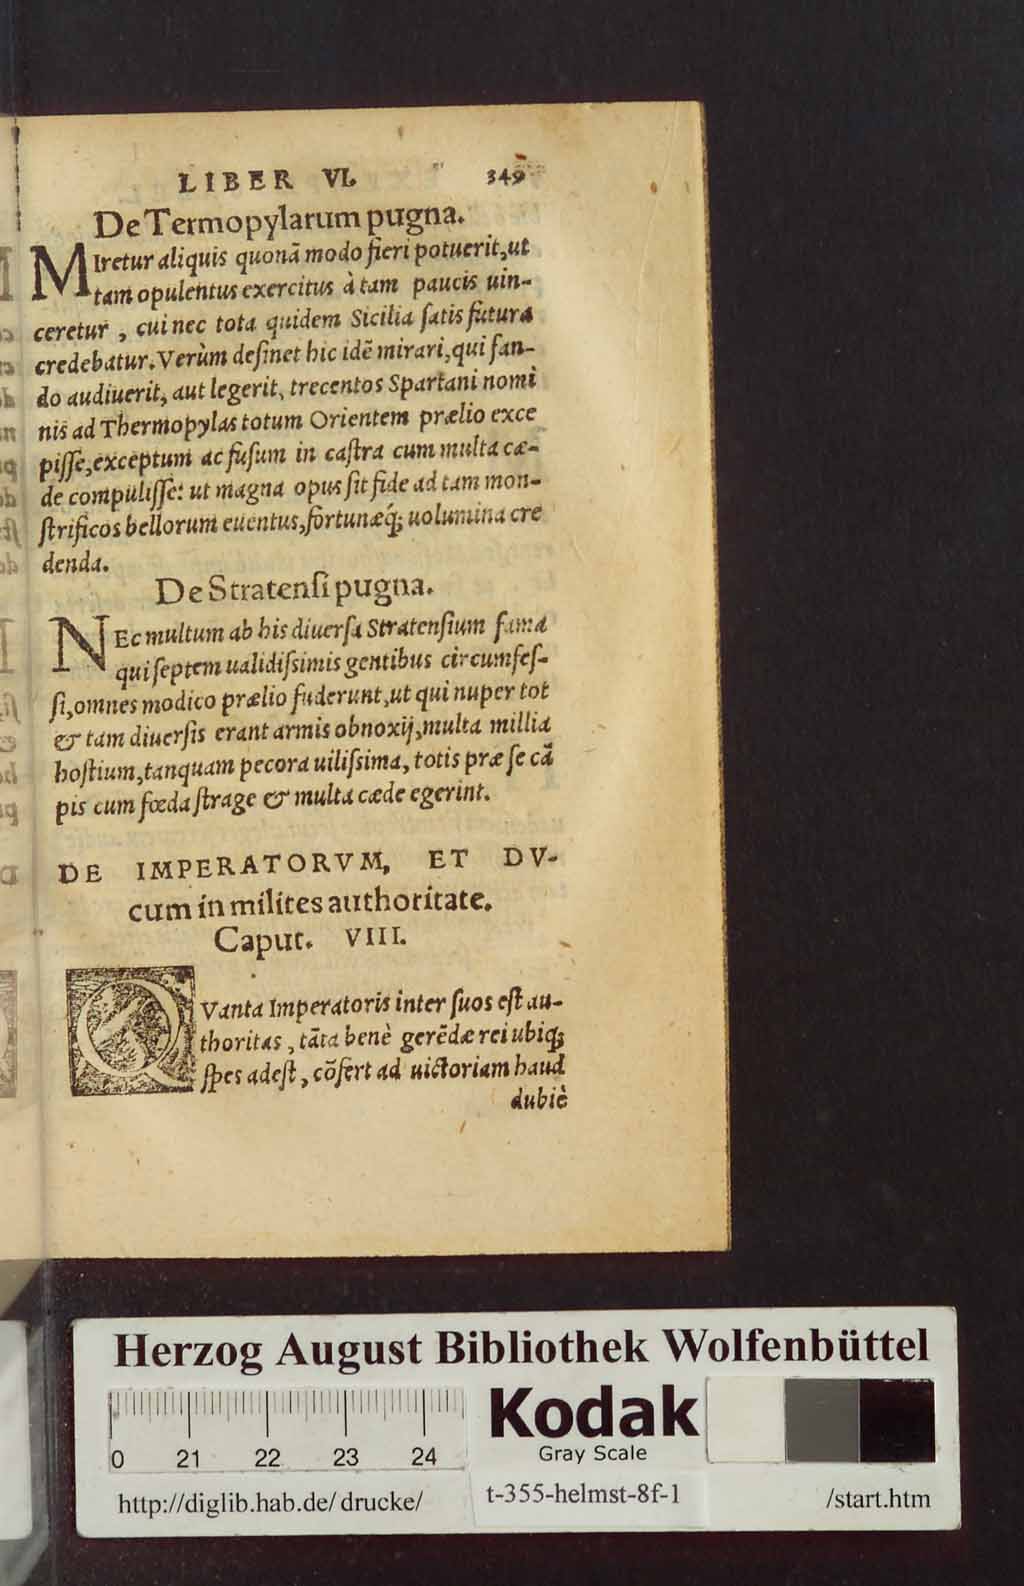 LIBER VI. 349
De Termopylarum pugna.
MIretur aliquis quonā modo fieri potuerit, ut
tam opulentus exercitus à tam paucis uin-
ceretur, cui nec tota quidem Sicilia ſatis futura
credebatur. Verùm deſinet hic idē mirari, qui fan-
do audiuerit, aut legerit, trecentos Spartani nomi
nis ad Thermopylas totum Orientem prælio exce
piſſe, exceptum ac fuſum in caſtra cum multa cæ-
de compuliſſe: ut magna opus ſit fide ad tam mon-
ſtrificos bellorum euentus, fortunæq́; uolumina cre
denda.
De Stratenſi pugna.
NEc multum ab his diuerſa Stratenſium fama
qui ſeptem ualidiſsimis gentibus circumſeſ-
ſi, omnes modico prælio fuderunt, ut qui nuper tot
& tam diuerſis erant armis obnoxij, multa millia
hoſtium, tanquam pecora uiliſsima, totis præ ſe cā
pis cum fœda ſtrage & multa cæde egerint.
DE IMPERATORVM, ET DV-
cum in milites authoritate.
Caput. VIII.
QVanta Imperatoris inter ſuos eſt au-
thoritas, tāta benè gerēdæ rei ubiq;
ſpes adeſt, cōfert ad uictoriam haud
dubiè
Herzog August Bibliothek Wolfenbüttel
0 21 22 23 24
Kodak
Gray Scale
http://diglib.hab.de/drucke/ t-355-helmst-8f-1 /start.htm